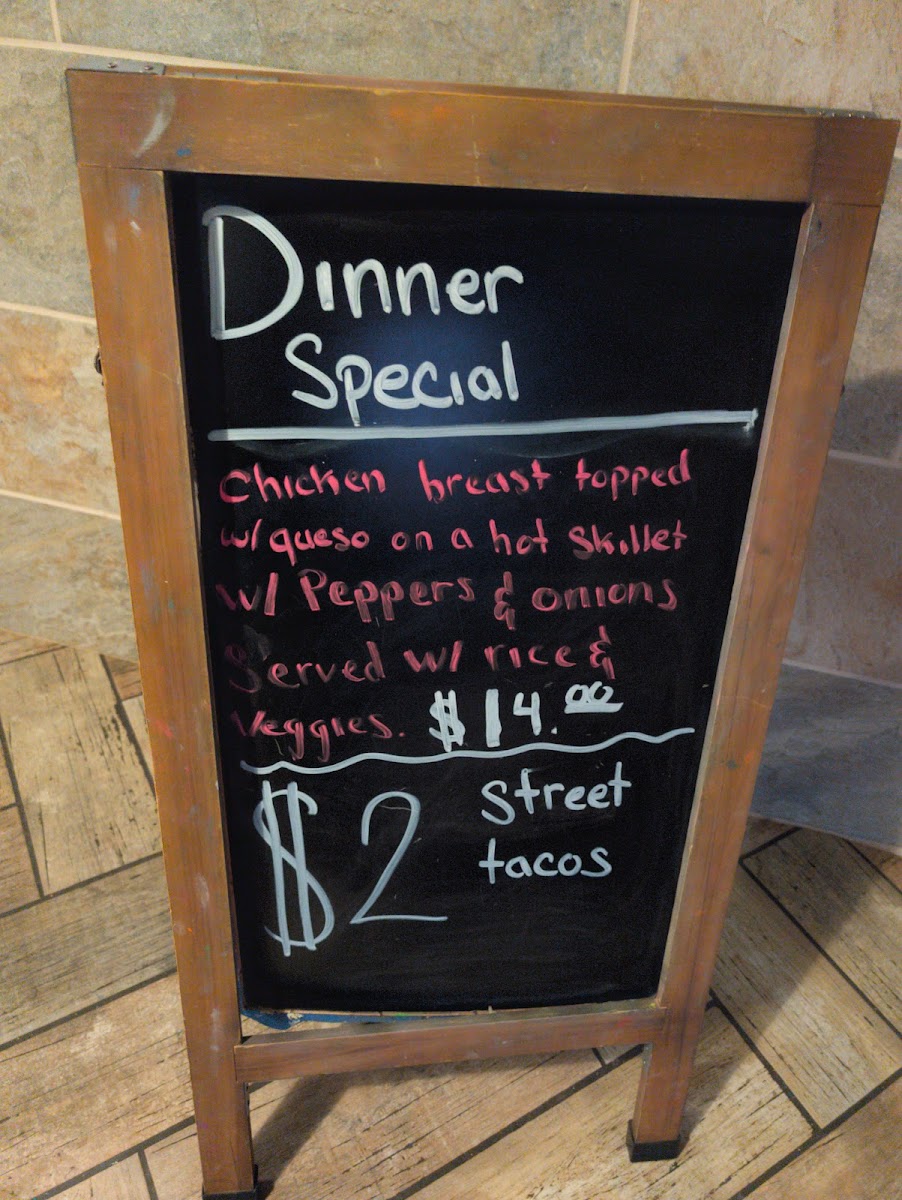 Dinner
Special
Chicken breast topped
w/ queso on a hot skillet
w/ Peppers & onions
Served w/ rice &
Veggies. $14.00
$2 Street
tacos